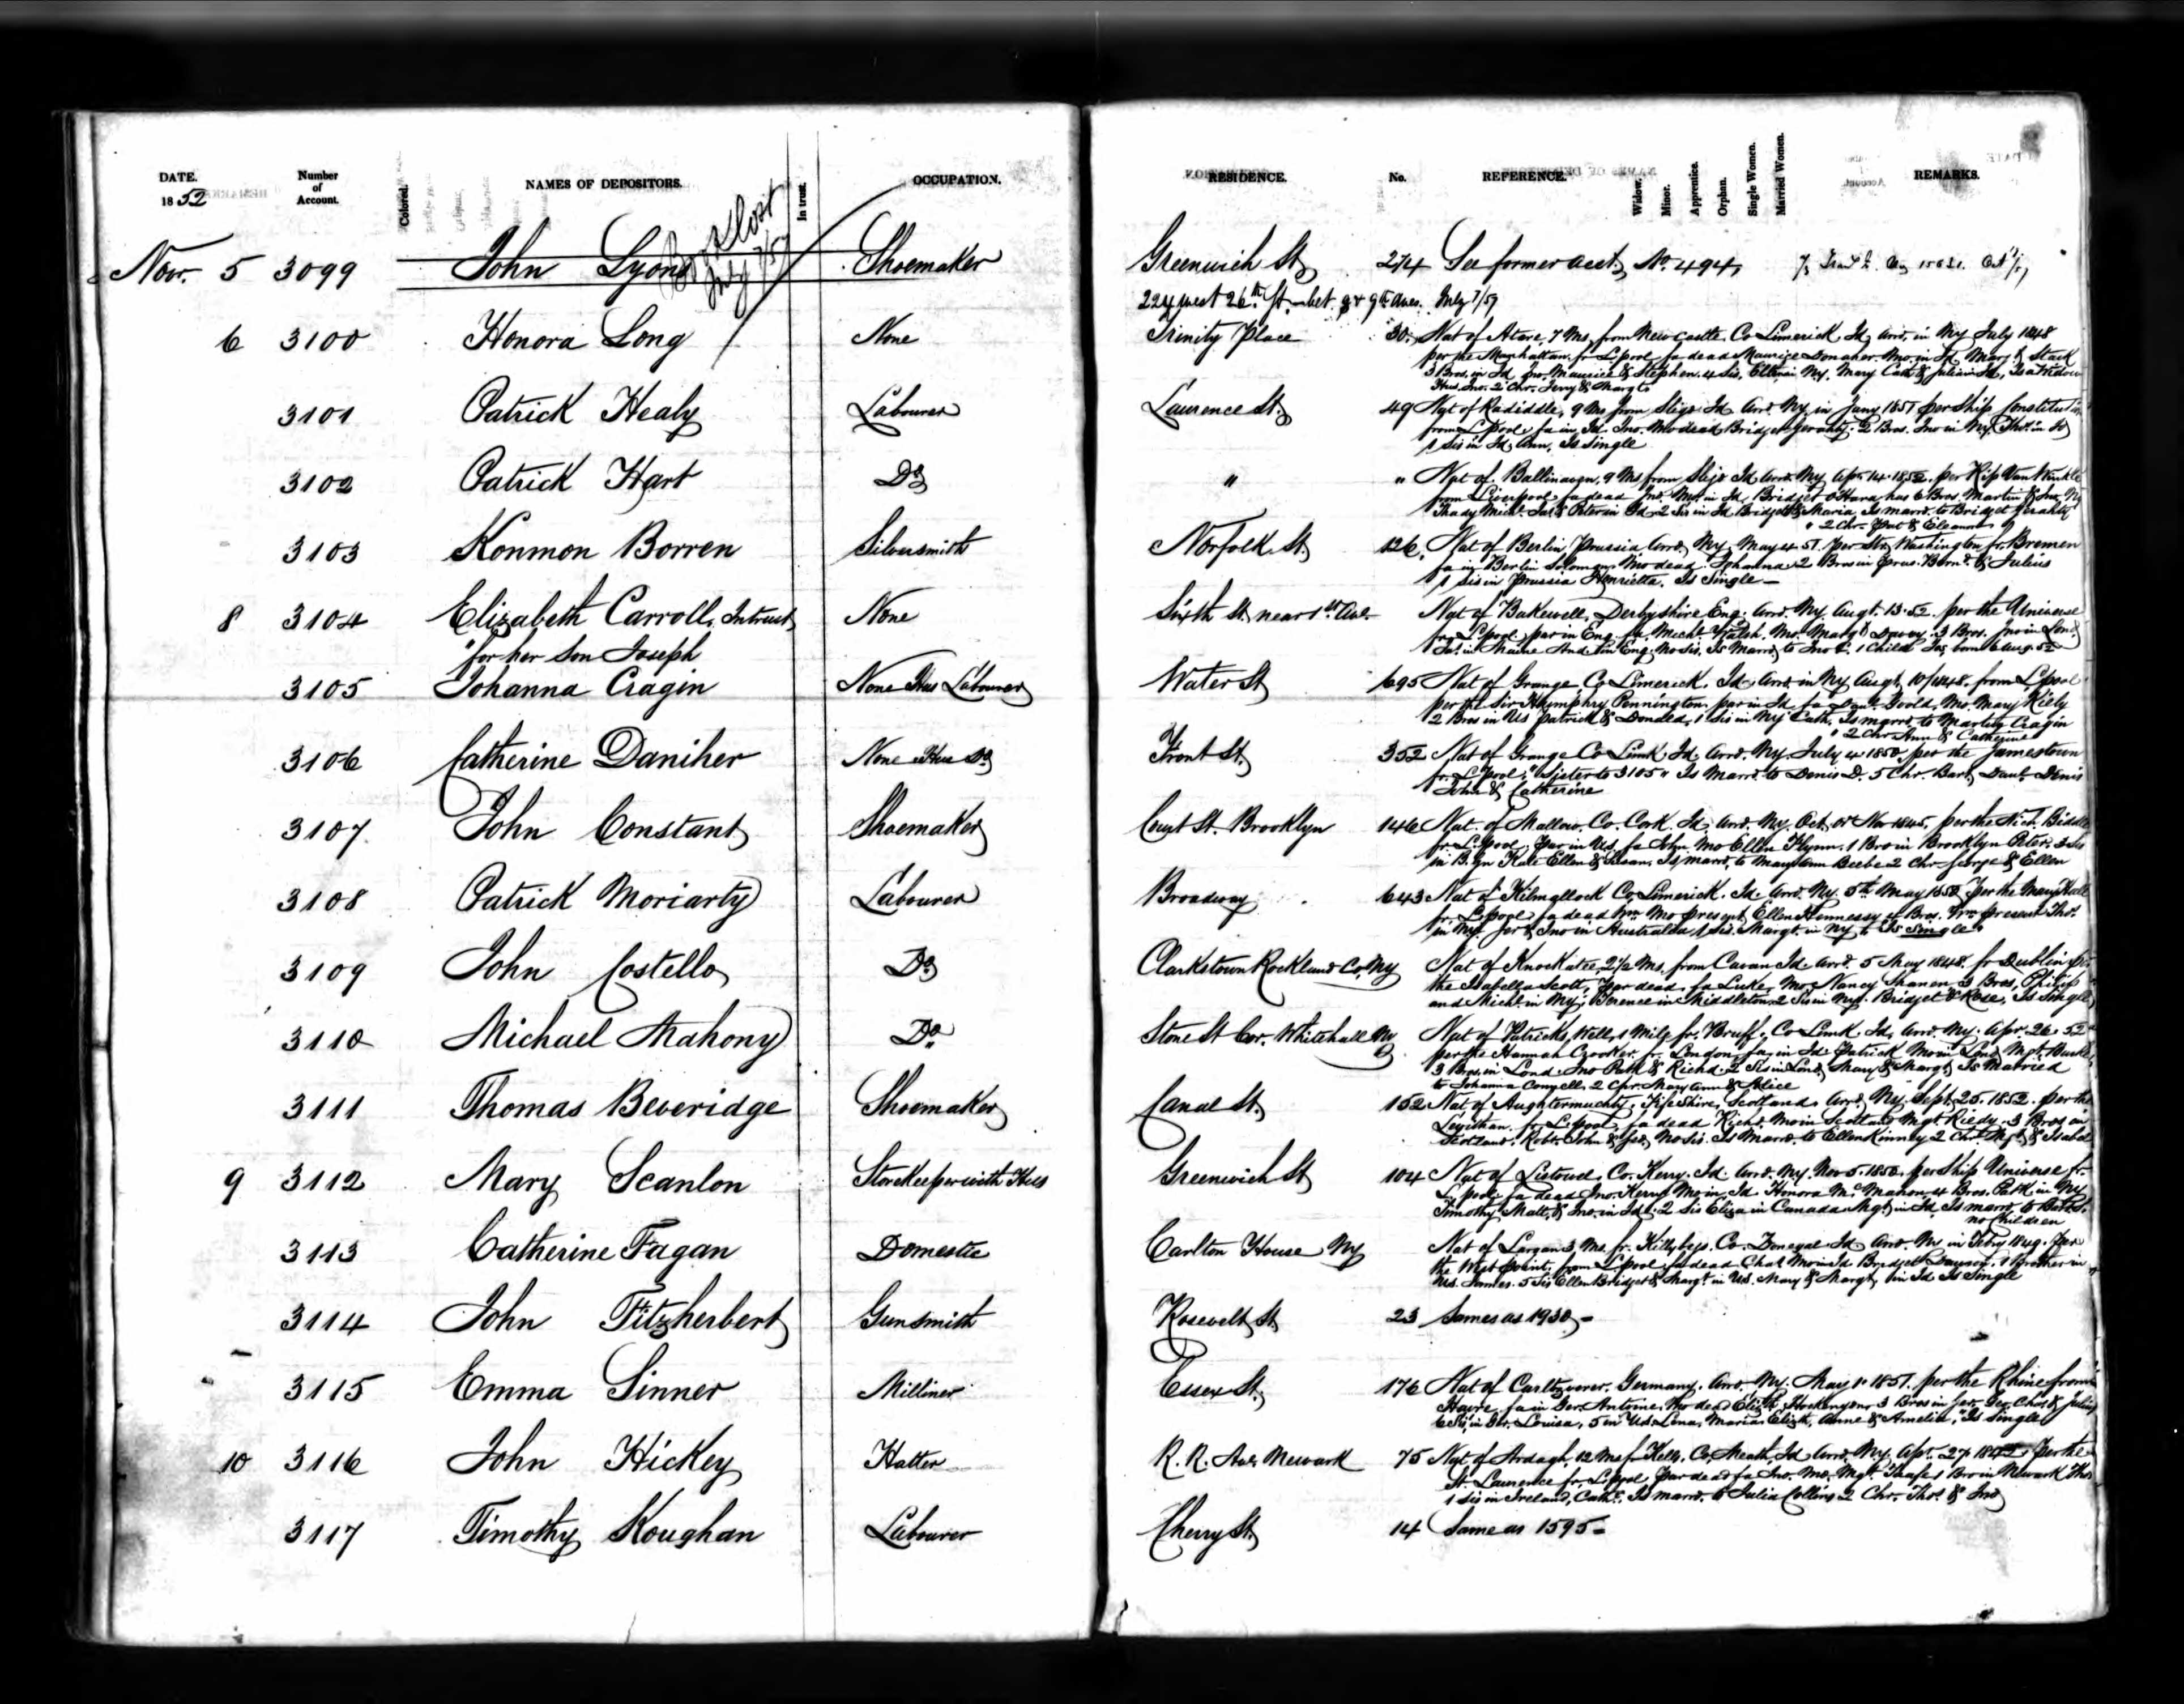 DATE. Number of Account. Colored. NAMES OF DEPOSITORS. In trust. OCCUPATION. RESIDENCE. No. REFERENCE. Widow. Minor. Apprentice. Orphan. Single Women. Married Women. REMARKS.
1852
Book lost July 7/59
Nov. 5 3099 John Lyons Shoemaker Greenwich St 274 See former acct, No. 494,
224 west 26th St. bet. 8 & 9th Aves. July 7/59
6 3100 Honora Long None Trinity Place 30 Nat of 7 Ms from New castle, Co Limerick Id, arrd, in Ny July 1848
per the Manhattan fr Lpool fa dead Maurice Donaher Mo. in Id, Margt Stack
3 Bros. in Id Jno. Maurice & Stephen. 4 Sis. Ellen in Ny. Mary Cath & Julia in Id, Is a Widow
Hus. Jno. 2 Chr. Jerry & Margt
3101 Patrick Healy Labourer Laurence St. 49 Nat of 9 Ms from Sligo Id Arrd Ny in Jany 1851 per Ship Constitution
from Lpool fa in Id. Jno. Mo dead Bridget 2 Bros. Jno in Ny, Thos. in Id
1 Sis in Id, Ann, Is Single
3102 Patrick Hart Do " " Nat of 9 Ms from Sligo Id Arrd Ny Apr. 14. 1852. per Rip Van Winkle
from Liverpool fa dead Jno. Mo. in Id, Bridget O'Hara has 6 Bros. Martin & Jno. Ny
Thady Michl. Jas & Peter in Id. 2 Sis in Id Bridget & Maria, Is marrd. to Bridget
" 2 Chr. Pat & Eleanor
3103 Konmon Borren Silversmith Norfolk St. 126. Nat of Berlin Prussia Arrd. Ny. May 4. 51. per Str. Washington fr. Bremen
fa in Berlin Solomon Mo dead Johanna 2 Bros in Prus. Bernd. & Julius
1 sis in Prussia Henrietta. Is Single
8 3104 Elizabeth Carroll, In trust None Sixth St. near 1st Ave. Nat of Bakewell, Derbyshire Eng. Arrd. Ny. Augt. 13. 52. per the Universe
for her Son Joseph
fr Lpool par in Eng. fa. Michl. Walsh. Mo. Margt Davey. 3 Bros. Jno in Lond.
Jas. in Maine And. in Eng. No sis. Is Marrd. to Jno C. 1 Child Jos born 6 Aug. 52
3105 Johanna Cragin None Hus Labourer Water St 695 Nat of Grange Co Limerick. Id. Arrd. in Ny Augt. 10/1848. from Lpool
per the Sir Humphry Pennington. par in Id fa Danl. Goold, Mo. Mary Kiely
2 Bros in Us Patrick & Donald, 1 Sis in Ny Cath. Is marrd. to Martin Cragin
" 2 Chr Ann & Catherine
3106 Catherine Daniher None Hus Do Front St. 352 Nat of Grange Co Limk. Id. Arrd. Ny. July 4 1850 per the Jamestown
fr. Lpool, "Sister to 3105" Is Marrd. to Denis D. 5 Chr. Bart, Danl. Denis
John & Catherine
3107. John Constant Shoemaker Court St. Brooklyn 146 Nat. of Mallow. Co. Cork. Id. Arrd. Ny. Oct. or Nov 1845, per the Nich. Biddle
fr. Lpool, Par in Us. fa John Mo Ellen Flynn. 1 Bro in Brooklyn Peter. 3 sis
in B.lyn Kate Ellen & Susan. Is marrd. to Mary Ann Beebe 2 Chr. George & Ellen
3108 Patrick Moriarty Labourer Broadway 643 Nat of Kilmallock Co Limerick. Id. Arrd. Ny. 5th May 1850 per the Mary Hall
fr. Lpool fa dead Wm Mo present Ellen Hennessy 4 Bros. Wm present Thos.
in Ny. Jer & Jno in Australia 1 Sis. Margt. in Ny Is Single
3109 John Costello Do Clarkstown Rockland Co. Ny Nat of 2½ Ms. from Cavan Id. Arrd. 5 May 1848. fr Dublin
the Isabella Scott, Par dead fa Luke, Mo. Nancy 3 Bros. Philip
and Michl. in Ny, Terence in Middleton. 2 Sis in Ny. Bridget & Rose, Is Single
3110 Michael Mahony Do. Stone St Cor. Whitehall Ny Nat of Patricks Well, 1 Mile fr. Bruff. Co Limk. Id. Arrd. Ny. Apr. 26. 52
per the Hannah Crooker fr. London, fa in Id Patrick Mo in Lond Mgt. Burke
3 Bros. in Lond. Jno Patk & Richd. 2 Sis in Lond, Mary & Margt, Is Married
to Johanna Conyell 2 Chr. Mary Ann & Alice
3111 Thomas Beveridge Shoemaker Canal St. 152 Nat of Aughtermuchty, Fifeshire, Scotland Arrd. Ny. Sept. 25. 1852. per the
Leviathan fr. Lpool fa dead Richd. Mo in Scotland Mgt. 3 Bros in
Scotland. Robt. John & Geo, No sis. Is Marrd. to Ellen Kinney 2 Chr. Mgt. & Isabel
9 3112 Mary Scanlon Storekeeper with Hus Greenwich St 104 Nat of Listowel. Co. Kerry. Id. Arrd. Ny. Nov 5. 1850. per Ship Universe fr.
Lpool fa dead Jno. Kerry Mo in Id. Honora McMahon 4 Bros. Patk in Ny
Timothy Matt. & Jno. in Id. 2 Sis Eliza in Canada Mgt. in Id, Is marrd. to
no Children
3113 Catherine Fagan Domestic Carlton House Ny Nat of Largan 3 Ms. fr. Killybegs. Co. Donegal Id Arrd. Ny in Feby 1849. per
the West point, from Lpool fa dead Chas Mo in Id Bridget 1 Brother in
Us. James. 5 Sis Ellen Bridget & Margt in Us. Mary & Margt, in Id Is Single
3114 John Fitzherbert Gunsmith Rosevelt St 23 Same as 1930
3115 Emma Sinner Milliner Essex St. 176 Nat of Germany. Arrd. Ny. May 1. 1851. per the Rhine from
Havre. fa in Ger. Antoine. Mo dead Elizth 3 Bros in Ger. Geo. Chas & Julius
6 Sis, in Ger. Louisa, 5 in Us. Lena, Maria Elizth, Anne & Amelia, Is Single
10 3116 John Hickey Hatter R. R. Ave Newark 75 Nat of Ardagh, 12 Ms fr Kells, Co. Meath Id Arrd. Ny. Apr. 27. per the
St. Lawrence fr. Lpool Par dead fa Jno. Mo. Mgt. 1 Bro in Newark Thos
1 Sis in Ireland, Cath. Is marrd. to Julia Collins 2 Chr. Thos. & Jno
3117 Timothy Koughan Labourer Cherry St. 14 Same as 1595